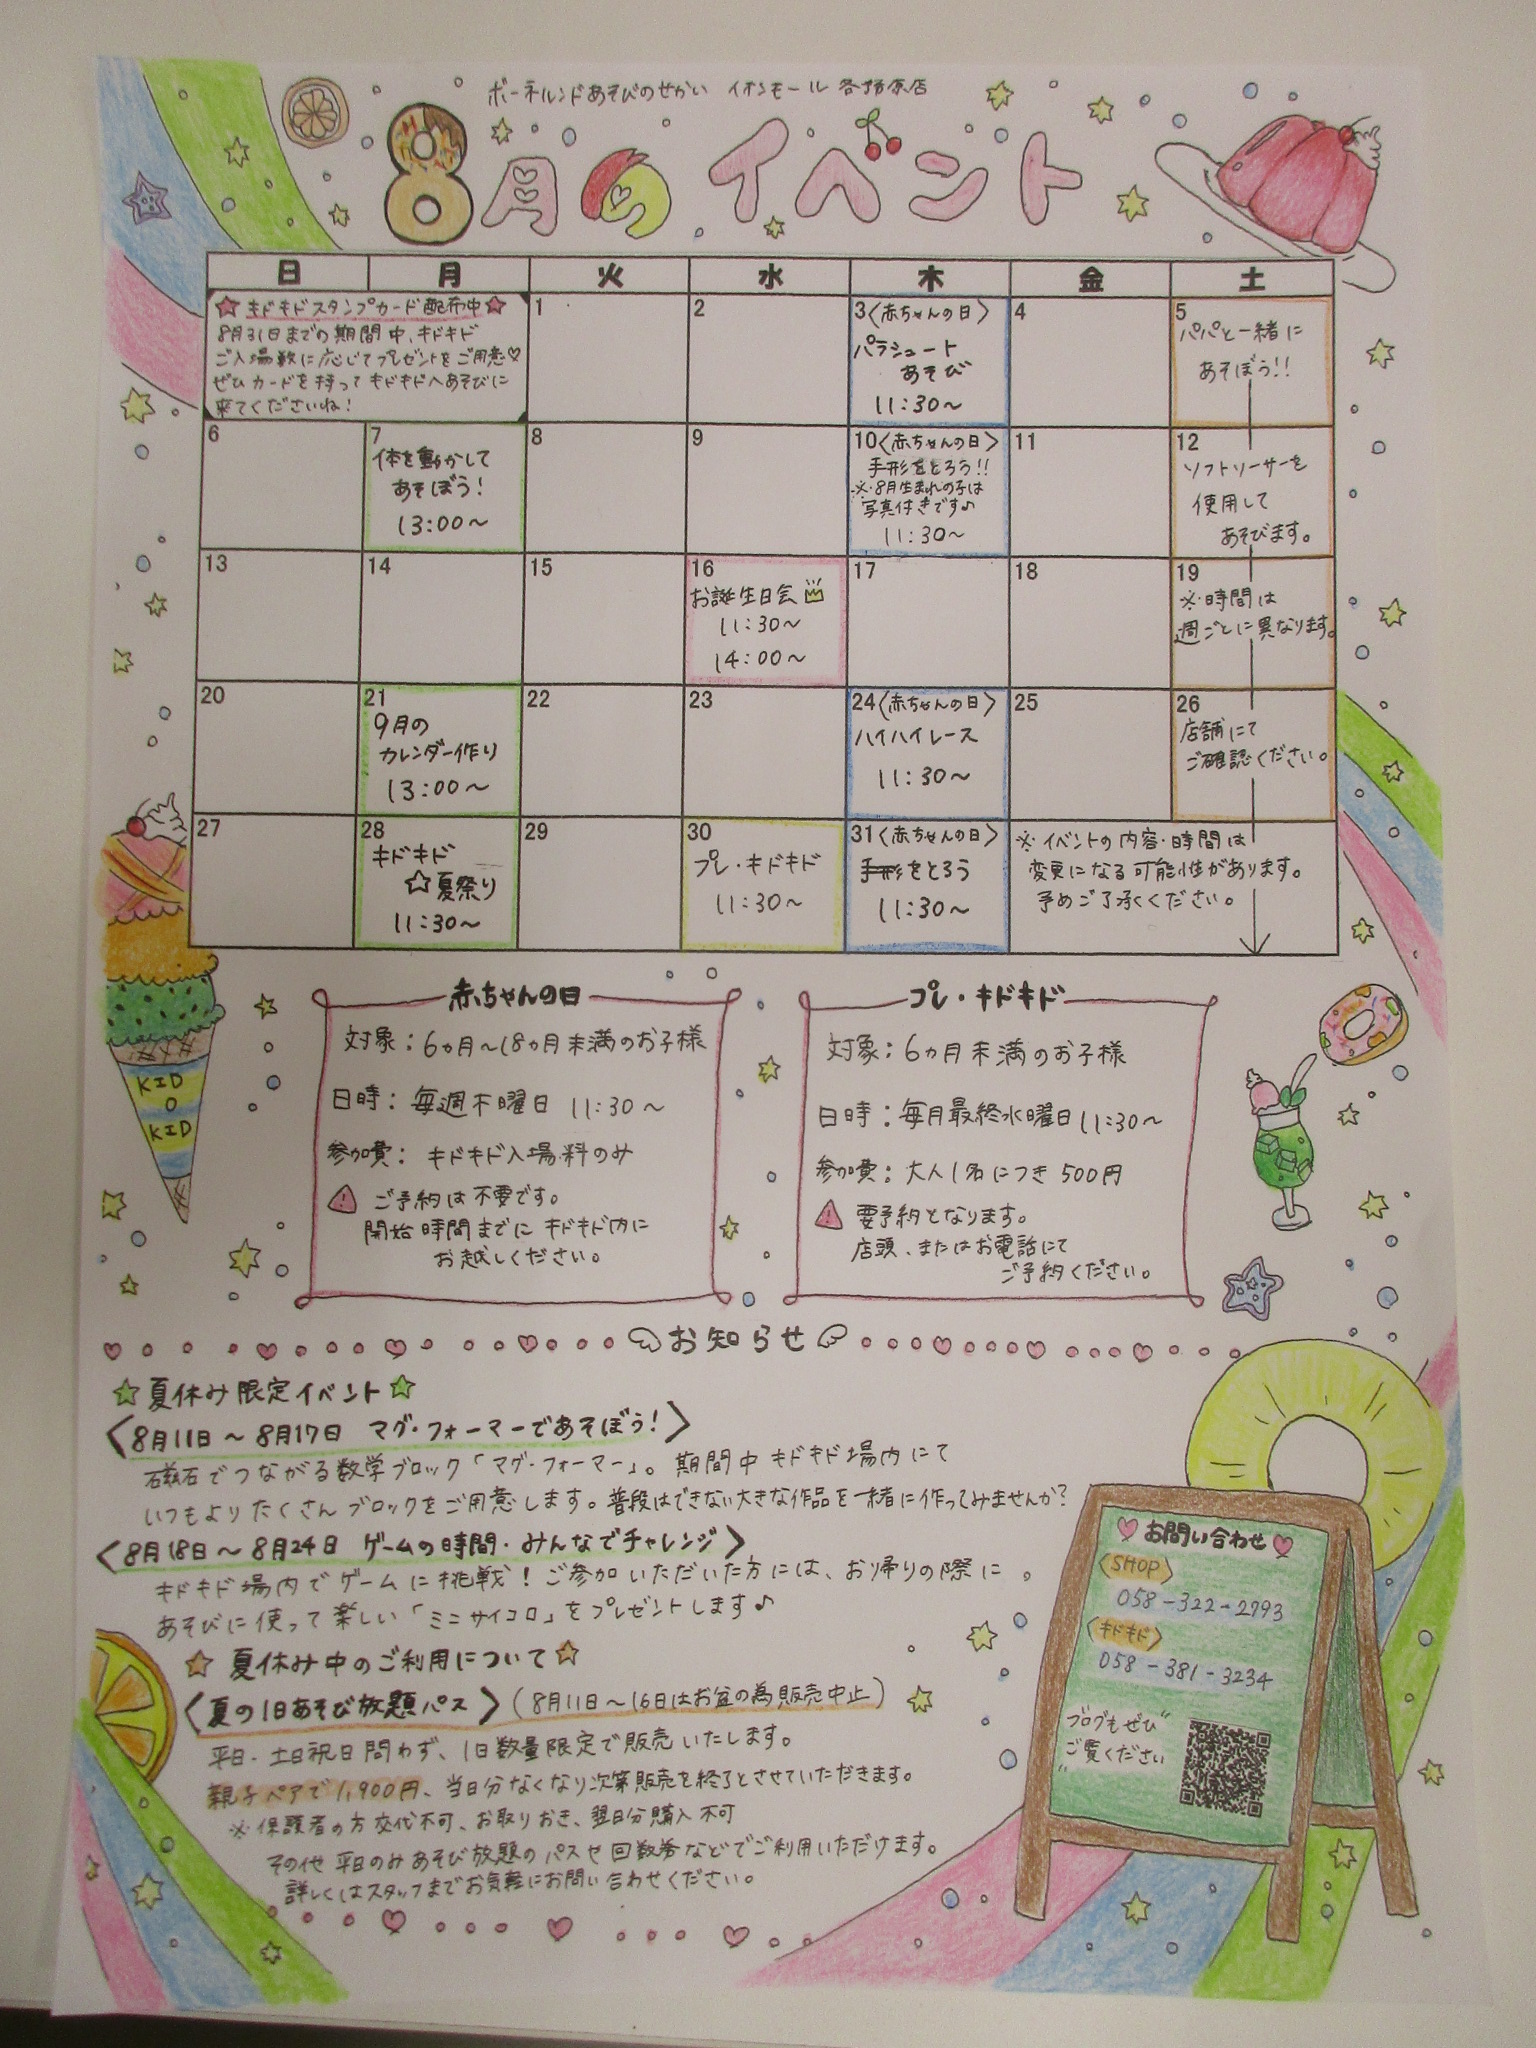 ボーネルンドあそびのせかい イオンモール各務原店
8月のイベント
日 月 火 水 木 金 土
☆キドキドスタンプカード配布中☆
8月31日までの期間中、キドキド
ご入場数に応じてプレゼントをご用意♡
ぜひカードを持ってキドキドへあそびに
来てくださいね!
1
2
3〈赤ちゃんの日〉
パラシュート
あそび
11:30〜
4
5
パパと一緒に
あそぼう!!
6
7
体を動かして
あそぼう!
13:00〜
8
9
10〈赤ちゃんの日〉
手形をとろう!!
※8月生まれの子は
写真付きです♪
11:30〜
11
12
ソフトソーサーを
使用して
あそびます。
13
14
15
16
お誕生日会
11:30〜
14:00〜
17
18
19
※時間は
週ごとに異なります。
20
21
9月の
カレンダー作り
13:00〜
22
23
24〈赤ちゃんの日〉
ハイハイレース
11:30〜
25
26
店舗にて
ご確認ください。
27
28
キドキド
☆夏祭り
11:30〜
29
30
プレ・キドキド
11:30〜
31〈赤ちゃんの日〉
手形をとろう
11:30〜
※イベントの内容・時間は
変更になる可能性があります。
予めご了承ください。
KID
O
KID
赤ちゃんの日
対象:6ヵ月〜18ヵ月未満のお子様
日時:毎週木曜日 11:30〜
参加費:キドキド入場料のみ
ご予約は不要です。
開始時間までにキドキド内に
お越しください。
プレ・キドキド
対象:6ヵ月未満のお子様
日時:毎月最終水曜日11:30〜
参加費:大人1名につき500円
要予約となります。
店頭、またはお電話にて
ご予約ください。
お知らせ
☆夏休み限定イベント☆
〈8月11日〜8月17日 マグ・フォーマーであそぼう!〉
磁石でつながる数学ブロック「マグ・フォーマー」。期間中キドキド場内にて
いつもよりたくさんブロックをご用意します。普段はできない大きな作品を一緒に作ってみませんか?
〈8月18日〜8月24日 ゲームの時間・みんなでチャレンジ〉
キドキド場内でゲームに挑戦!ご参加いただいた方には、お帰りの際に
あそびに使って楽しい「ミニサイコロ」をプレゼントします♪
☆夏休み中のご利用について☆
〈夏の1日あそび放題パス〉(8月11日〜16日はお盆の為販売中止)
平日・土日祝日問わず、1日数量限定で販売いたします。
親子ペアで1,900円、当日分なくなり次第販売を終了とさせていただきます。
※保護者の方交代不可、お取りおき、翌日分購入不可
その他平日のみあそび放題のパスや回数券などでご利用いただけます。
詳しくはスタッフまでお気軽にお問い合わせください。
♡お問い合わせ♡
〈SHOP〉
058-322-2793
〈キドキド〉
058-381-3234
ブログもぜひ
ご覧ください